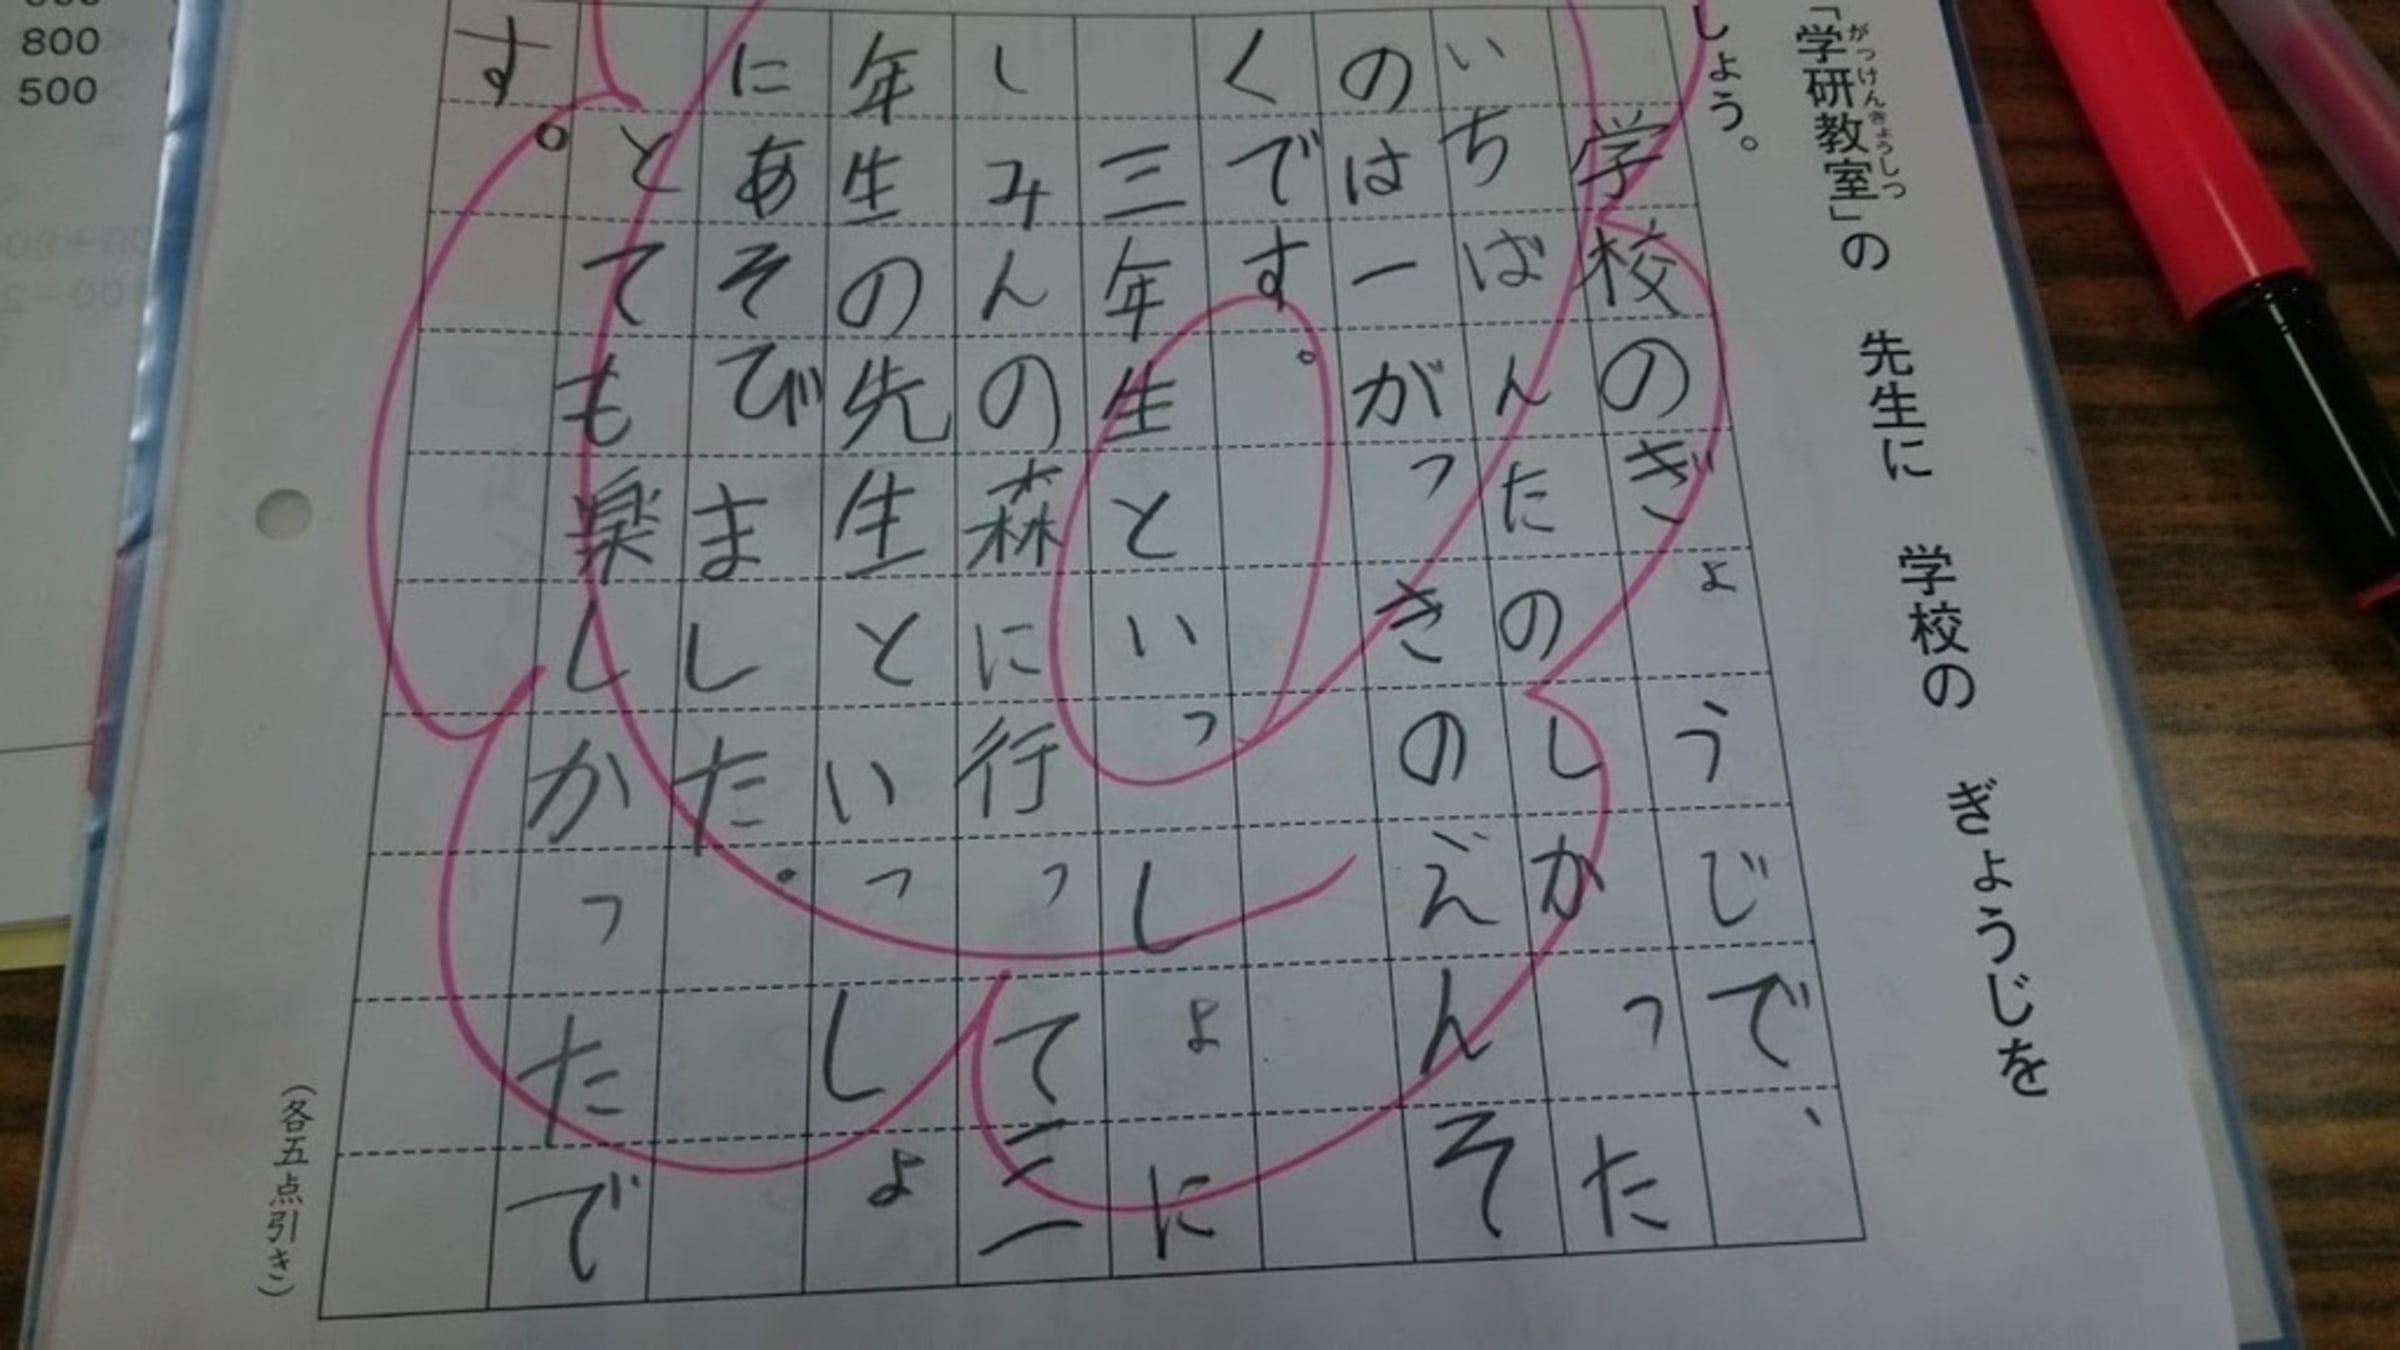 「学研教室」の　先生に　学校の　ぎょうじを
がっけんきょうしつ
しょう。
学校のぎょうじで、
いちばんたのしかった
のは一がっきのえんそ
くです。
三年生といっしょに
しみんの森に行って三
年生の先生といっしょ
にあそびました。
とても楽しかったで
す。
（各五点引き）
800
500